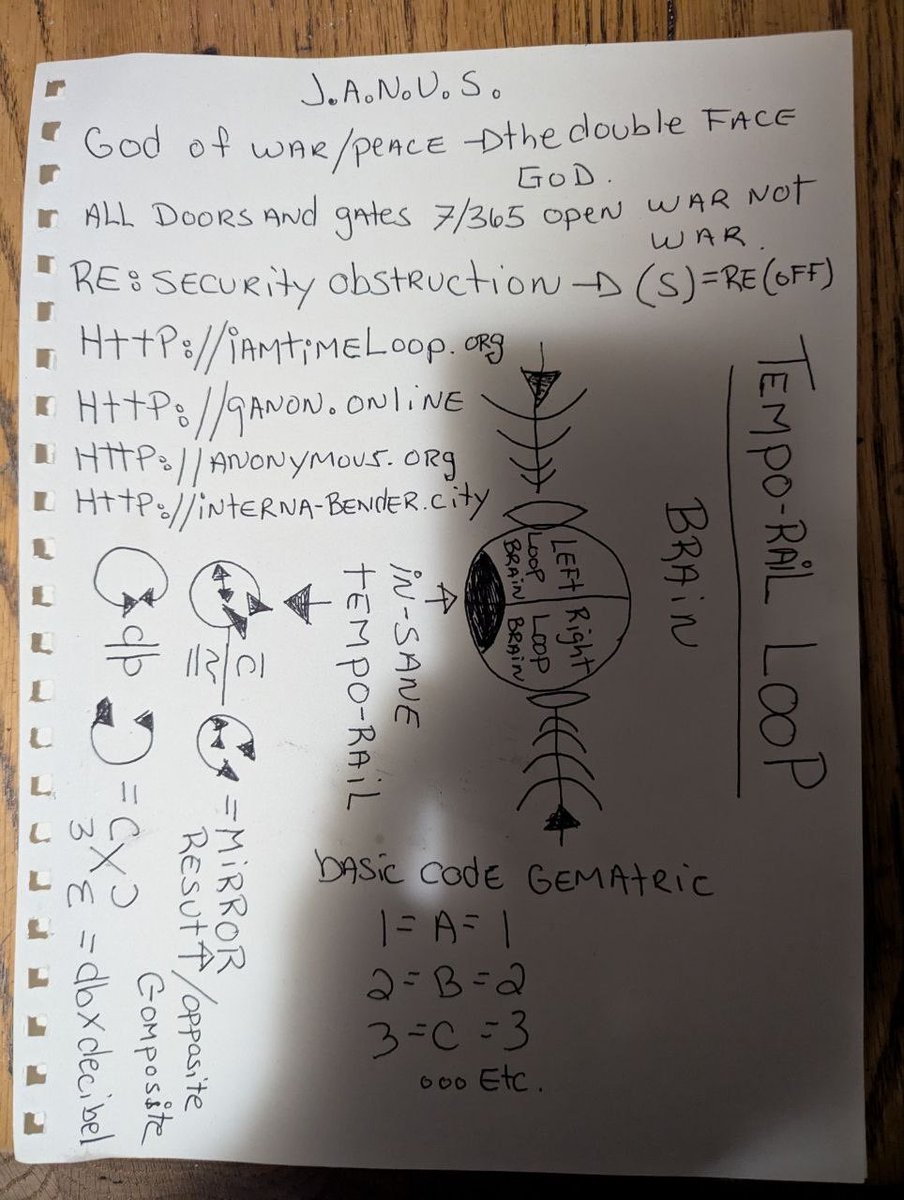 J.A.N.U.S.
God of WAR/PEACE → the double FACE
GOD.
ALL DOORS AND gates 7/365 open WAR NOT
WAR.
RE: SECURITY obstruction → (S)=RE(OFF)
HttP://iAMtiMELoop.org
HttP://qANON.ONLiNE
HttP://ANONYMOUS.ORg
HttP://iNtERNA-BENdER.city
TEMPO-RAiL LOOP
BRAiN
LEFT LOOP BRAIN
Right LOOP BRAIN
iN-SANE
tEMPO-RAiL
= MiRROR
RESUT /opposite
Composite
db = C X Ɔ
3 Ɛ = dbxdecibel
bASIC CODE GEMAtRiC
1 = A = 1
2 = B = 2
3 = C = 3
ooo Etc.